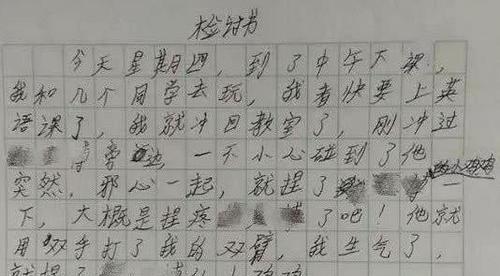 检讨书
今天星期四，到了中午下课，
我和几个同学去玩，我看快要上英
语课了，我就冲回教室了，刚冲过
旁边，一不小心碰到了他
突然，邪心一起，就捏了一
下，大概是捏疼了吧！他就
用双手打了我的双臂，我生气了，